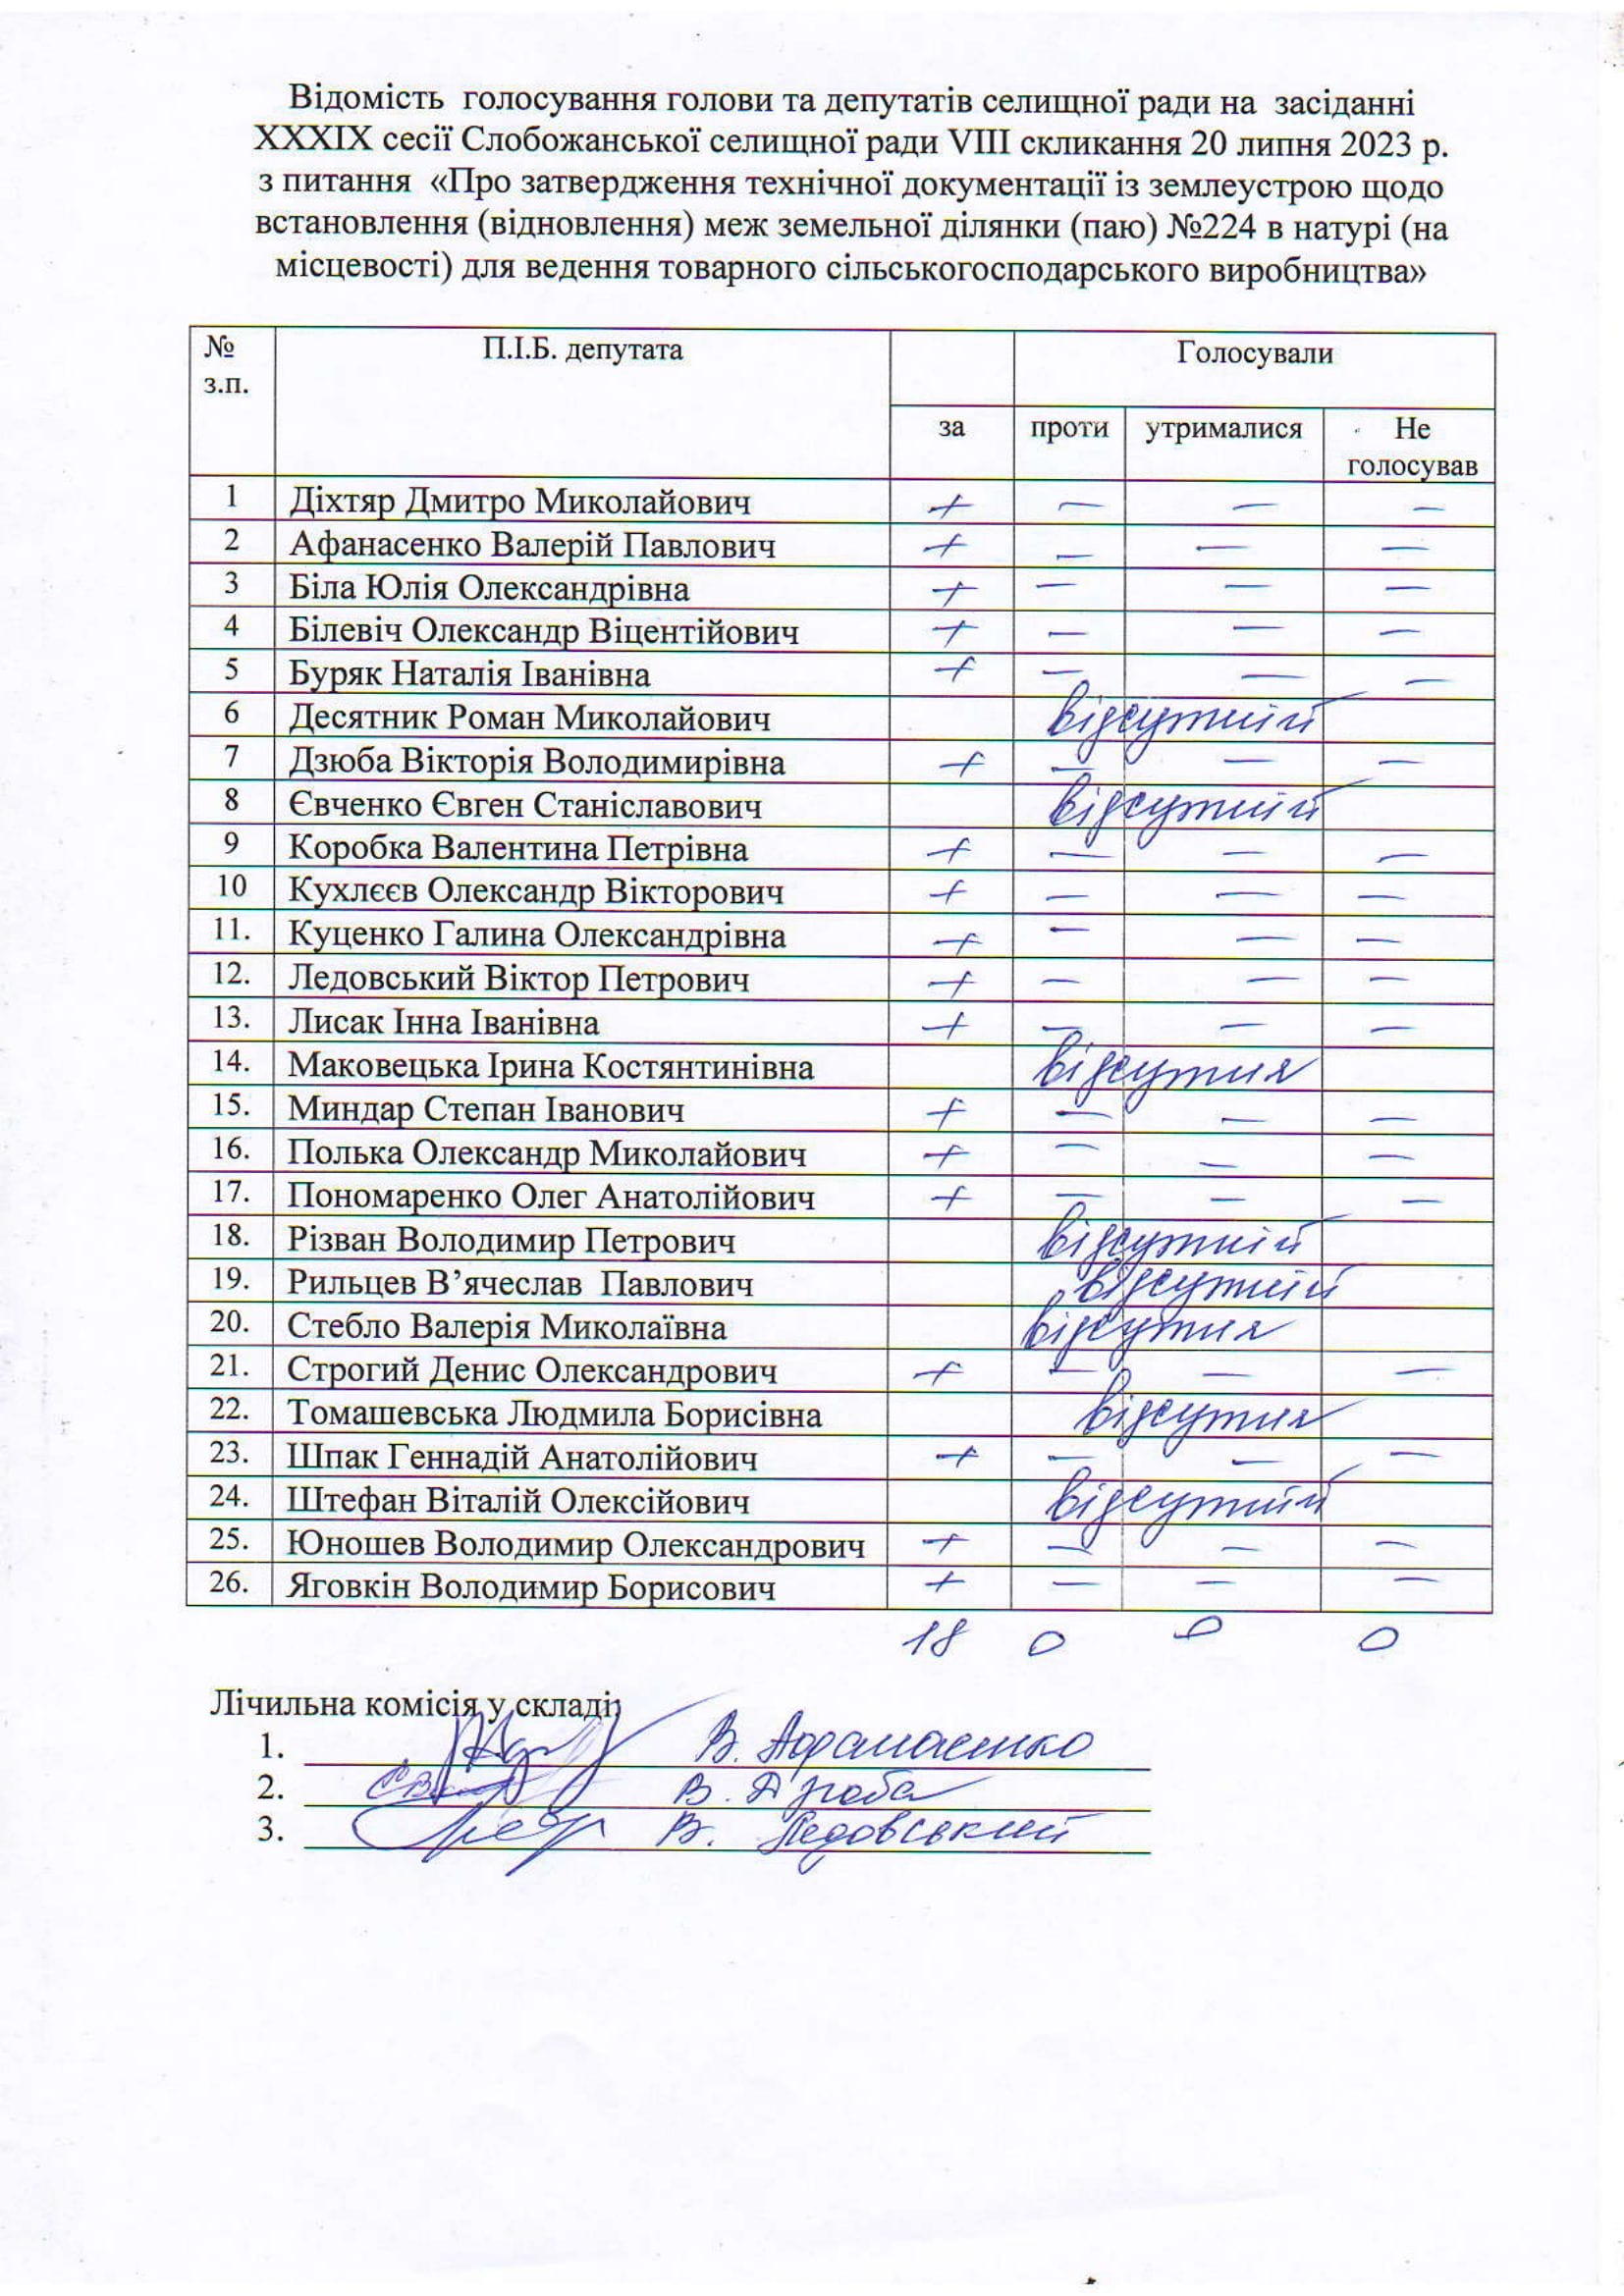 Відомість голосування голови та депутатів селищної ради на засіданні
XXXIX сесії Слобожанської селищної ради VIII скликання 20 липня 2023 р.
з питання «Про затвердження технічної документації із землеустрою щодо
встановлення (відновлення) меж земельної ділянки (паю) №224 в натурі (на
місцевості) для ведення товарного сільськогосподарського виробництва»
№ П.І.Б. депутата Голосували
з.п.
за проти утрималися Не
голосував
1 Діхтяр Дмитро Миколайович + — — —
2 Афанасенко Валерій Павлович + — — —
3 Біла Юлія Олександрівна + — — —
4 Білевіч Олександр Віцентійович + — — —
5 Буряк Наталія Іванівна + — — —
6 Десятник Роман Миколайович відсутній
7 Дзюба Вікторія Володимирівна + — — —
8 Євченко Євген Станіславович відсутній
9 Коробка Валентина Петрівна + — — —
10 Кухлєєв Олександр Вікторович + — — —
11. Куценко Галина Олександрівна + — — —
12. Ледовський Віктор Петрович + — — —
13. Лисак Інна Іванівна + — — —
14. Маковецька Ірина Костянтинівна відсутня
15. Миндар Степан Іванович + — — —
16. Полька Олександр Миколайович + — — —
17. Пономаренко Олег Анатолійович + — — —
18. Різван Володимир Петрович відсутній
19. Рильцев В’ячеслав Павлович відсутній
20. Стебло Валерія Миколаївна відсутня
21. Строгий Денис Олександрович + — — —
22. Томашевська Людмила Борисівна відсутня
23. Шпак Геннадій Анатолійович + — — —
24. Штефан Віталій Олексійович відсутній
25. Юношев Володимир Олександрович + — — —
26. Яговкін Володимир Борисович + — — —
18 0 0 0
Лічильна комісія у складі:
1. В. Афанасенко
2. В. Дзюба
3. В. Ледовський